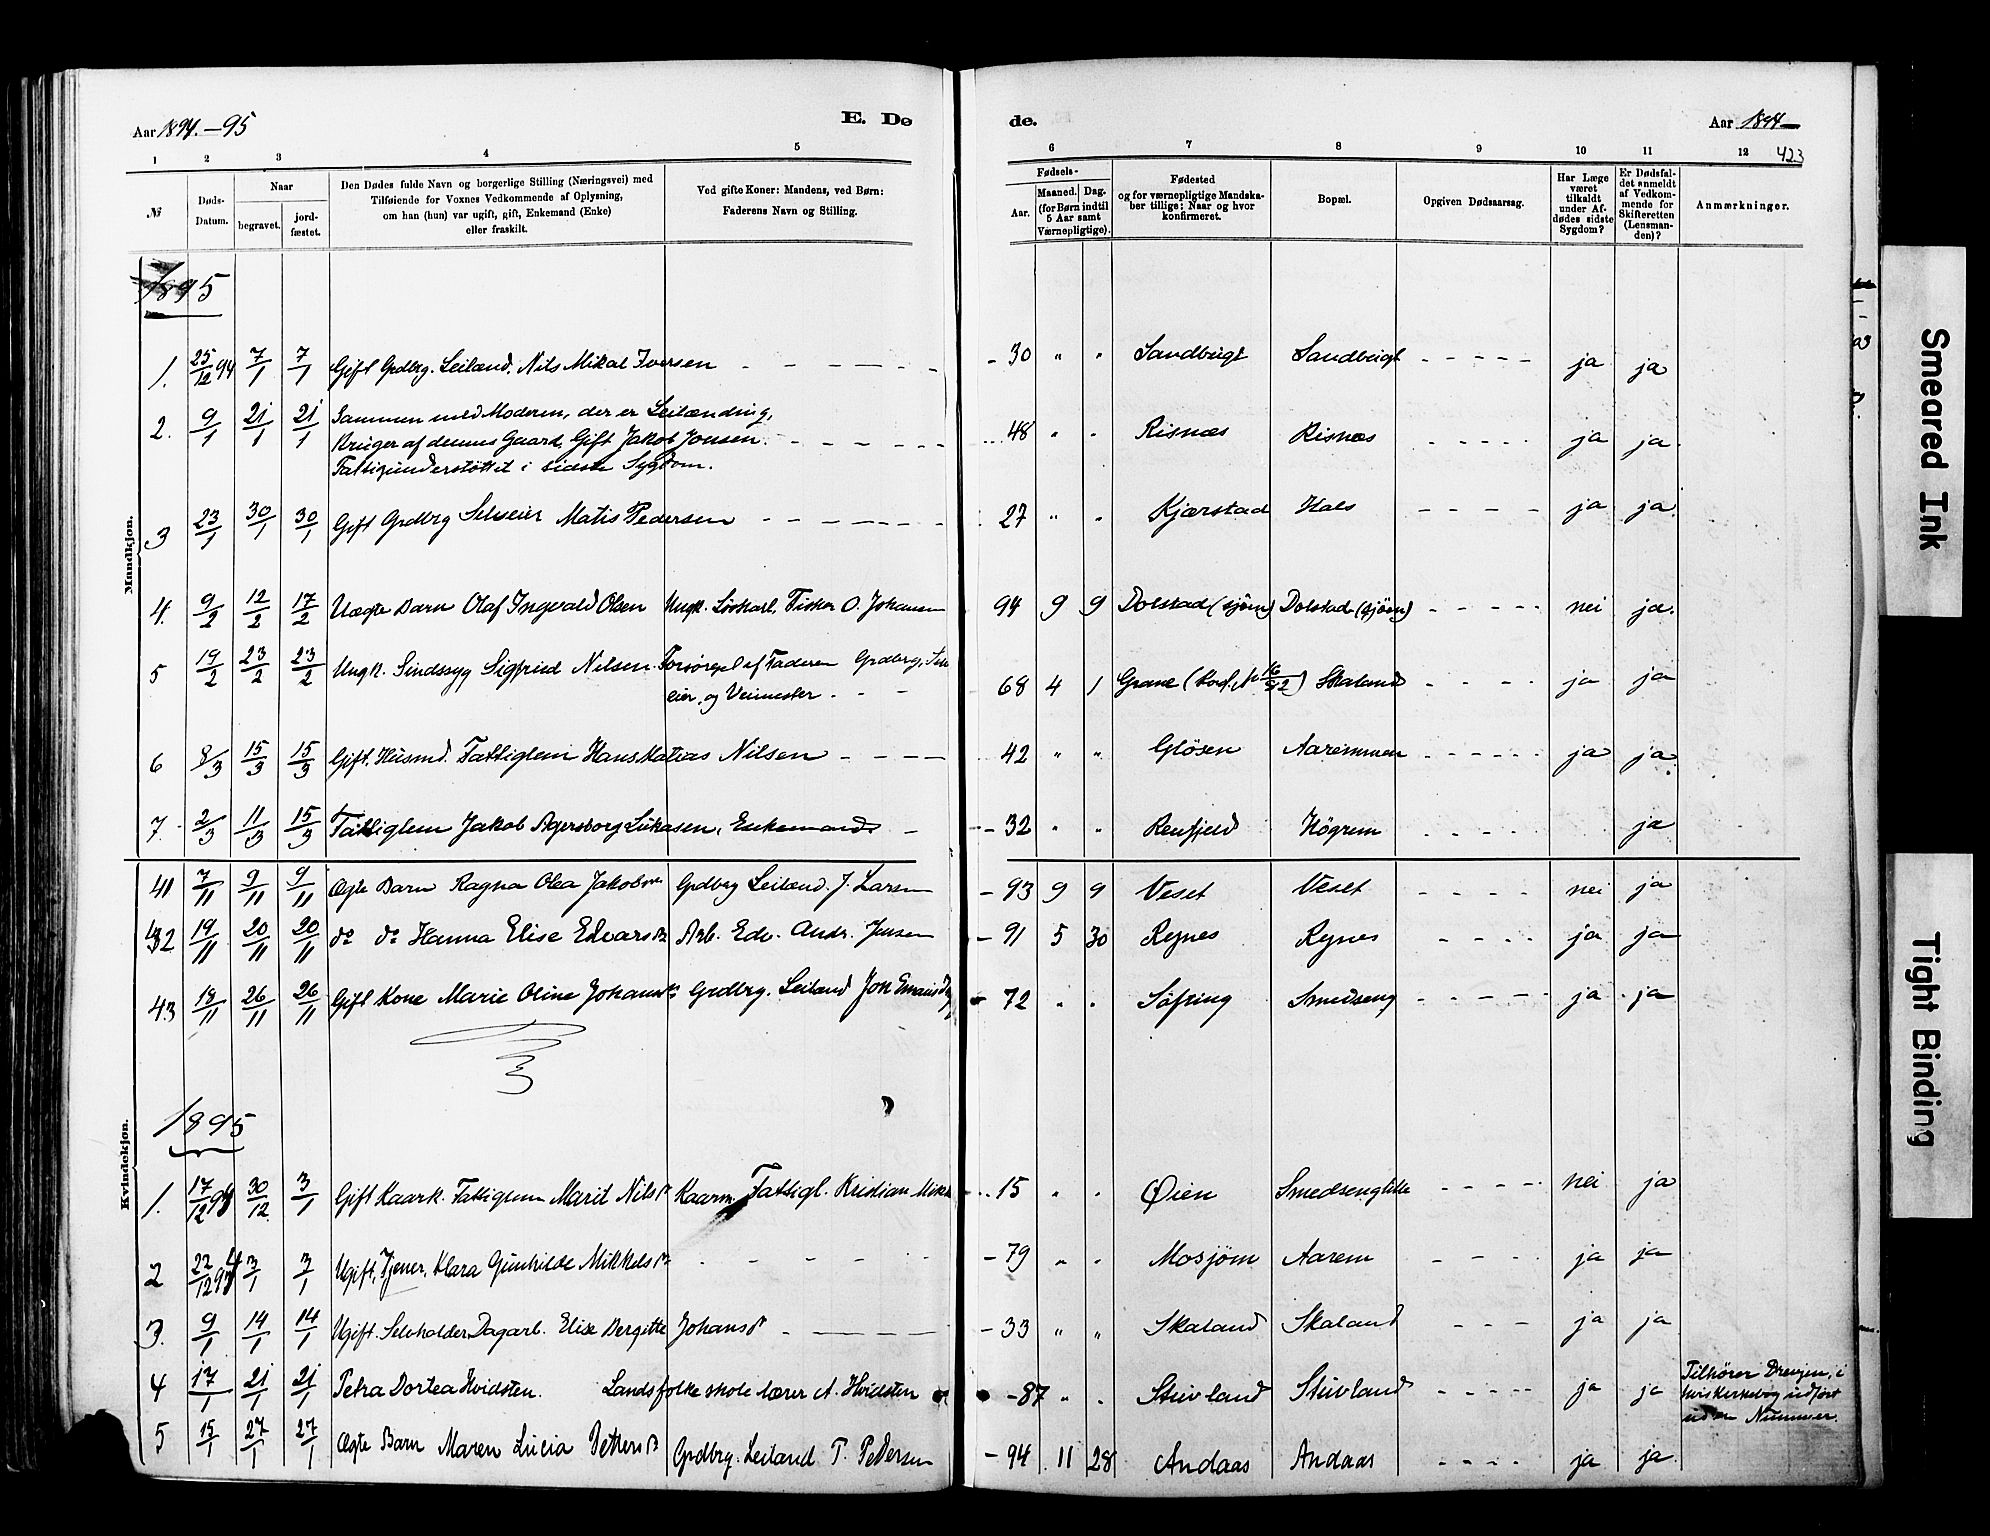 Aar 1894.-95
E. Dø
de.
Aar 1894
1 2 3 4 5 6 7 8 9 10 11 12 423
№
Døds-Datum.
Naar
begravet.
jord-fæstet.
Den Dødes fulde Navn og borgerlige Stilling (Næringsvei) med
Tilføiende for Voxnes Vedkommende af Oplysning,
om han (hun) var ugift, gift, Enkemand (Enke)
eller fraskilt.
Ved gifte Koner: Mandens, ved Børn:
Faderens Navn og Stilling.
Fødsels-
Aar.
Maaned. Dag.
(for Børn indtil
5 Aar samt
Værnepligtige).
Fødested
og for værnepligtige Mandska-
ber tillige: Naar og hvor
konfirmeret.
Bopæl.
Opgiven Dødsaarsag.
Har Læge
været
tilkaldt
under Af-
dødes sidste
Sygdom?
Er Dødsfal-
det anmeldt
af Vedkom-
mende for
Skifteretten
(Lensman-
den)?
Anmærkninger.
Mandkjøn.
1895
1. 25/12 94 7/1 7/1 Gift Grdbrg. Leilænd. Nils Mikal Iversen - 30 " " Sandbugt Sandbugt ja ja
2. 9/1 21/1 21/1 Sammen med Moderen, der er Leilænding,
Bruger af dennes Gaard, Gift Jakob Jonsen. 48 " " Risnæs Risnæs ja ja
Fattigunderstöttet i sidste Sygdom.
3 23/1 30/1 30/1 Gift Grdbrg Selveier Matis Pedersen 27 " " Kjærstad Hals ja ja
4. 9/2 12/2 17/2 Uægte Barn Olaf Ingvald Olsen Ungk. Löskarl, Fisker O. Johansen 94 9 9 Dolstad (sjöen) Dolstad (sjöen) nei ja.
5 19/2 23/2 23/2 Ungk. Sindssyg Sigfried Nilsen. Forsørget af Faderen Grdbrg,
eier. og Veimester. 68 4 1 Grane Skaland ja ja
6 8/3 15/3 15/3 Gift. Husmd. Fattiglem Hans Matias Nilsen 42 " " Glösen Aaremmen ja ja
7. 2/3 11/3 15/3 Fattiglem Jakob Agersborg Lukasen, Enkemand - 32 " " Renfjeld Högrem ja
Kvindekjøn.
41 7/11 9/11 9/11 Ægte Barn Ragna Olea Jakobsdr Grdbrg Leilænd. J. Larsen - 93 9 9 Veset Veset nei ja
42 19/11 20/11 20/11 do do Hanna Elise Edvarsdr Arb. Edv. Andr. Jensen - 91 5 30 Rynes Rynes ja ja
43 18/11 26/11 26/11 Gift Kone Marie Oline Johansdr Grdbrg. Leiland Joh - 72 " " Söfting Smedseng ja ja
1895
1. 17/12 94 30/12 3/1 Gift Kaark. Fattiglem Marit Nilsdr Kaarm. Fattigl. Kristian 15 " " Øien Smedsenglille nei ja
2 22/12 94 3/1 3/1 Ugift, Tjener, Klara Gunhilde Mikkelsdr - 79 " " Mosjöen Aarem ja ja
3. 9/1 14/1 14/1 Ugift. Selvholder Dagarb. Elise Bergitte Johansdr - 33 " " Skaland Skaland ja ja
4 17/1 21/1 21/1 Petra Dortea Hvidsten. Landsfolkeskolelærer A. Hvidsten - 87 " " Stuvland Stuvland ja ja Tilhörer Drevjen, i
hvis kirkebog indfört
uden Nummer.
5 15/1 27/1 27/1 Ægte Barn Maren Lucia Pettersdr Grdbrg. Leiland P. Pedersen - 94 11 28 Andaas Andaas ja ja
Smeared Ink
Tight Binding